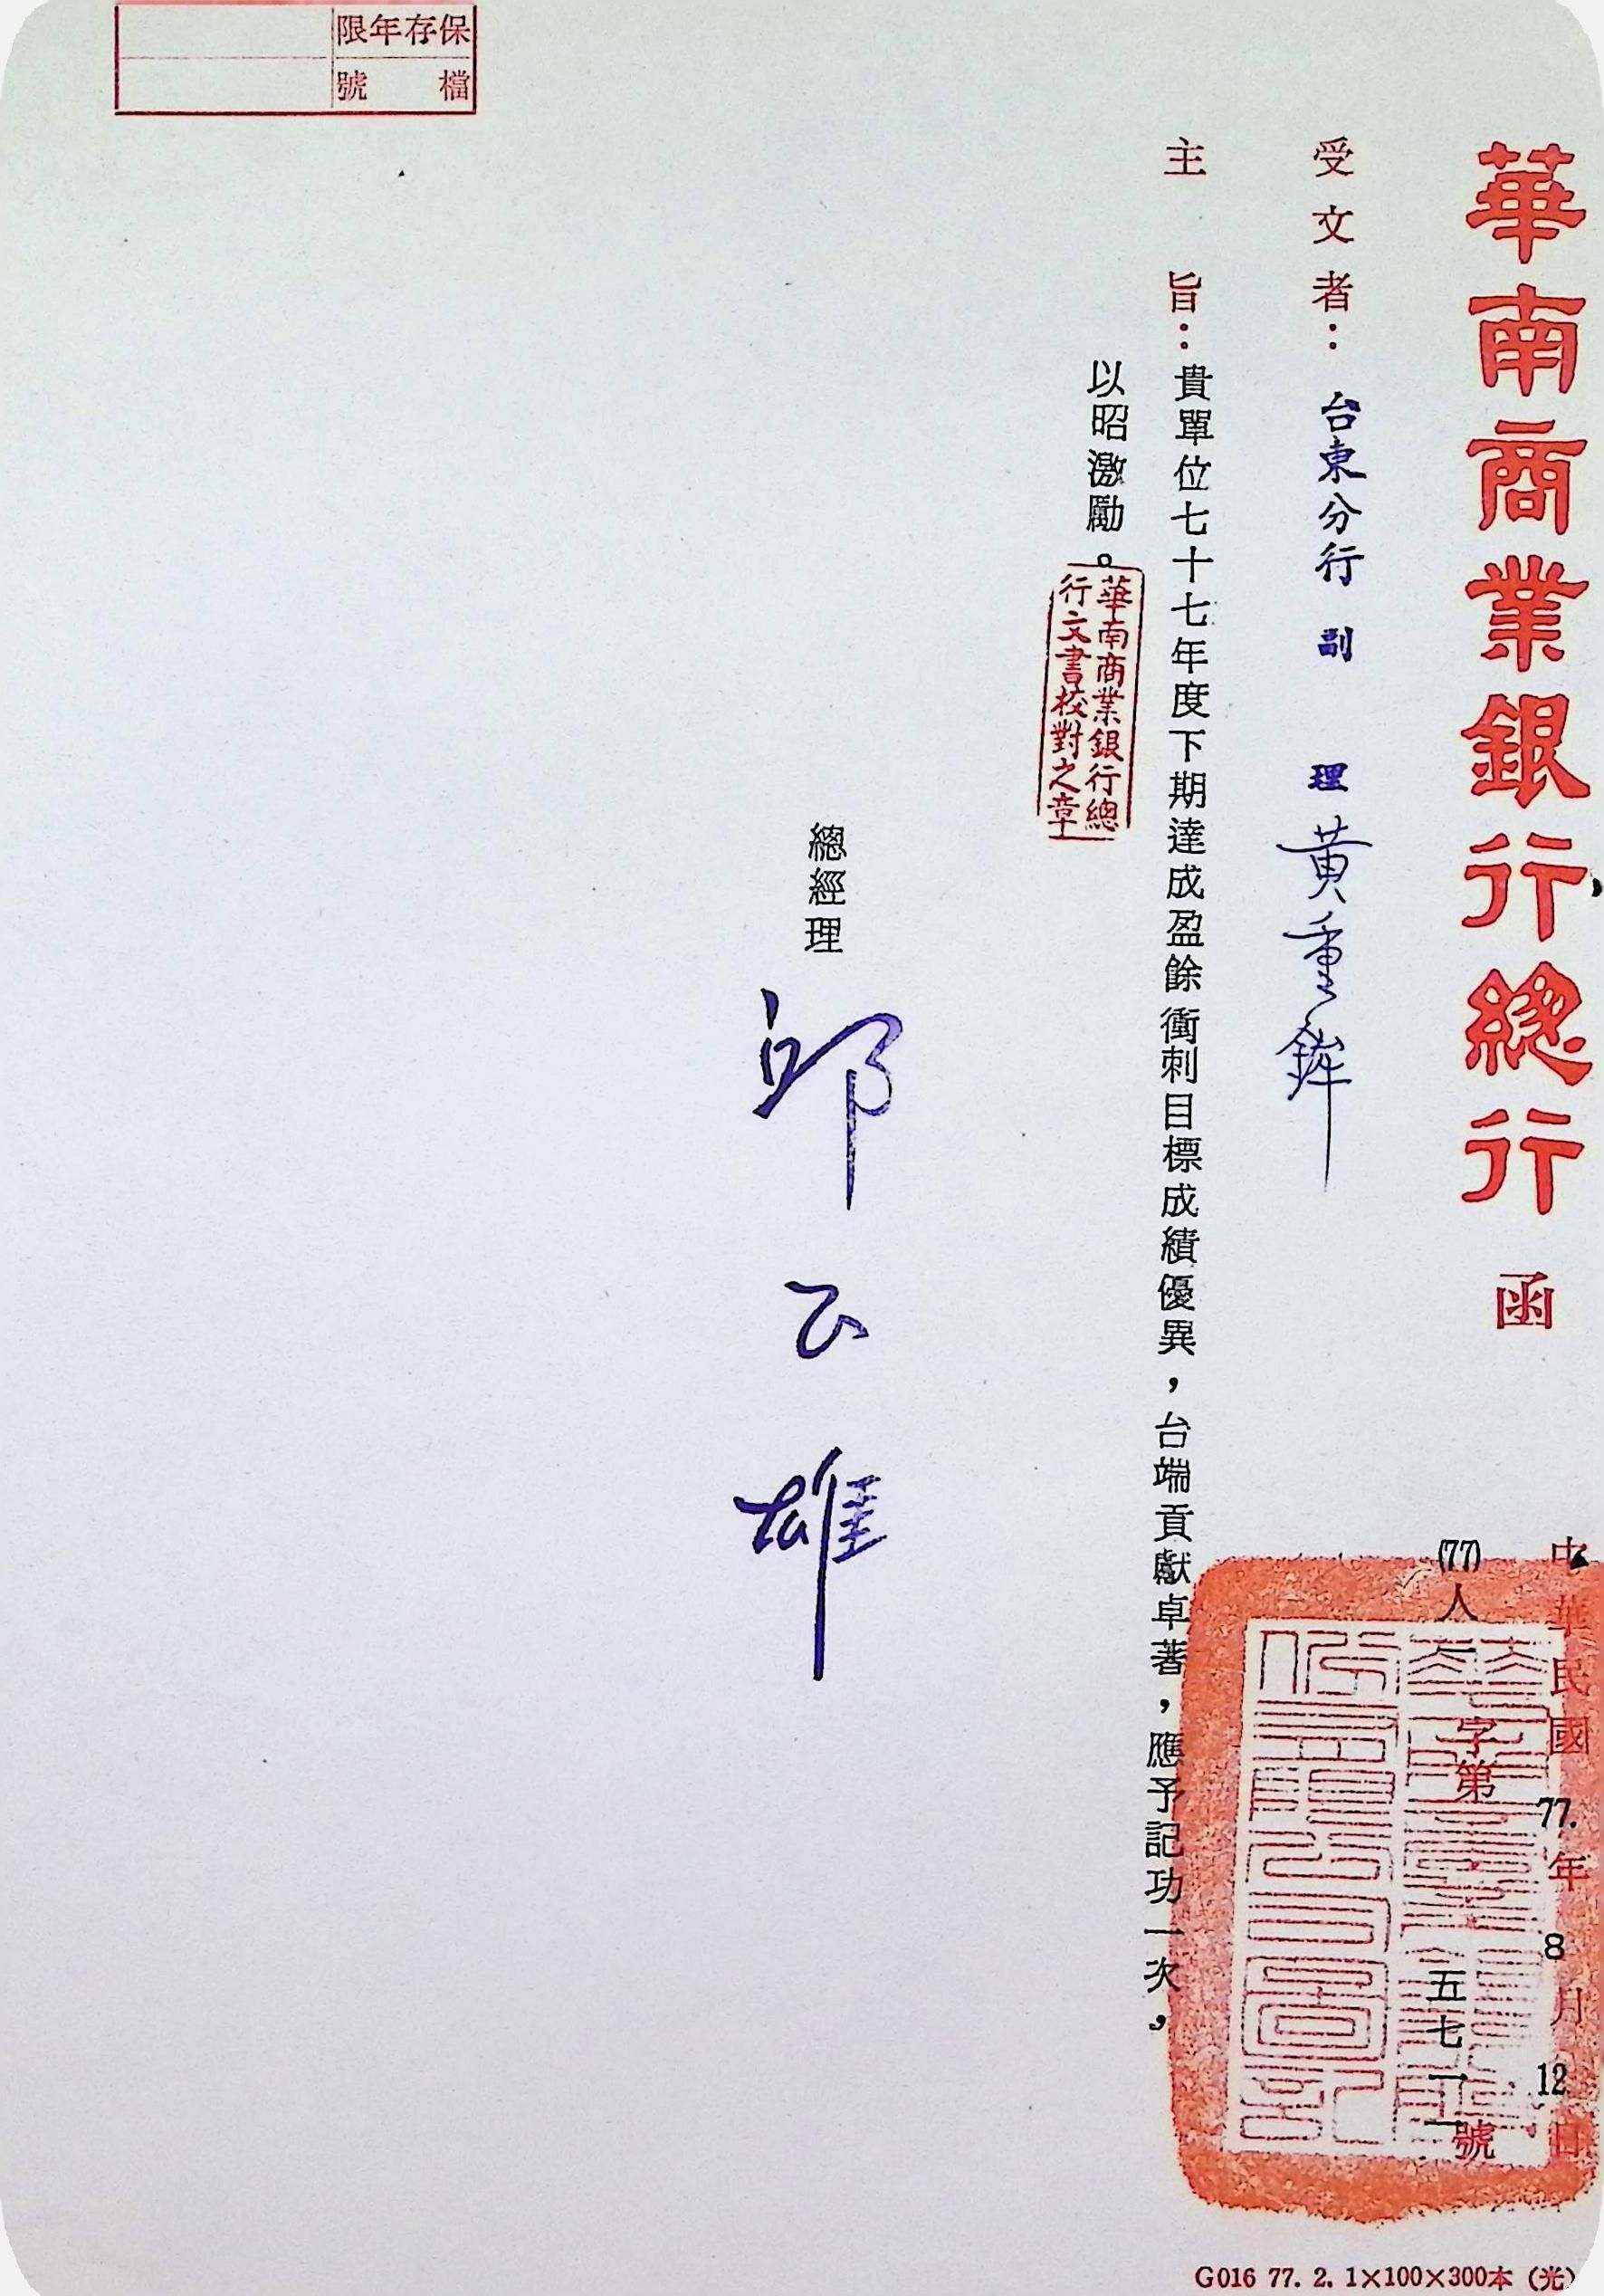 華南商業銀行總行 函
中華民國77.年8月12日
(77)人字第五七一一號
受文者：台東分行 副 理 黃重鉾
主旨：貴單位七十七年度下期達成盈餘衝刺目標成績優異，台端貢獻卓著，應予記功一次，
以昭激勵。
華南商業銀行總
行文書校對之章
總經理 邱正雄
保存年限
檔號
G016 77. 2. 1×100×300本 (光)